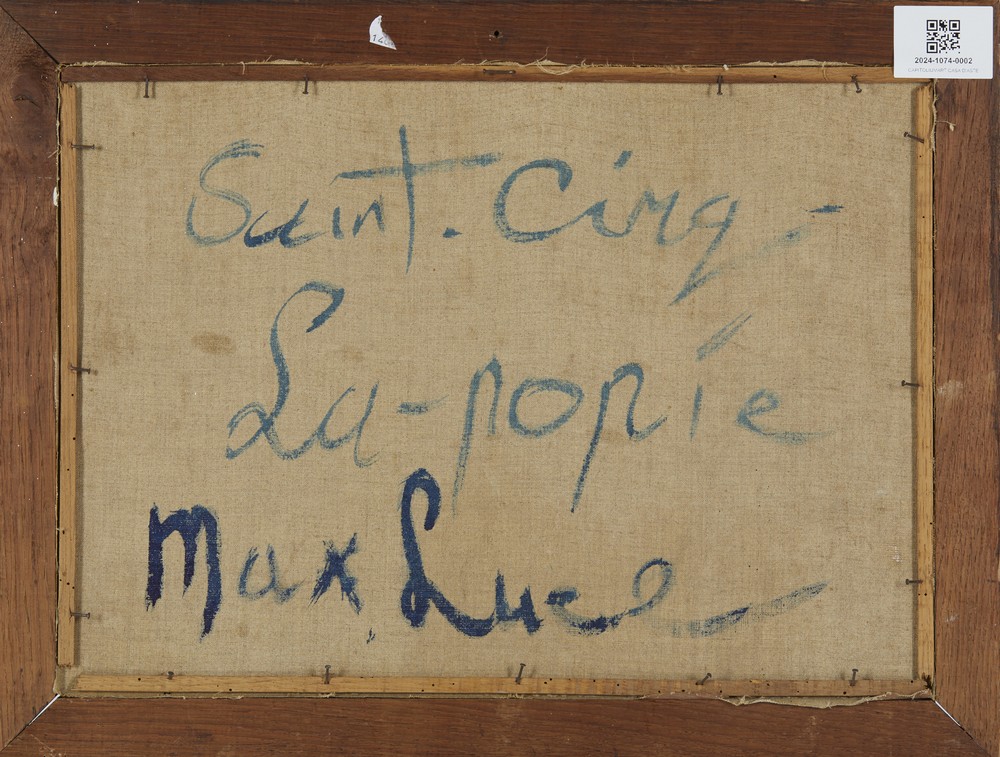 140
2024-1074-0002
Saint. Cirq-
La-popie
Max. Luce